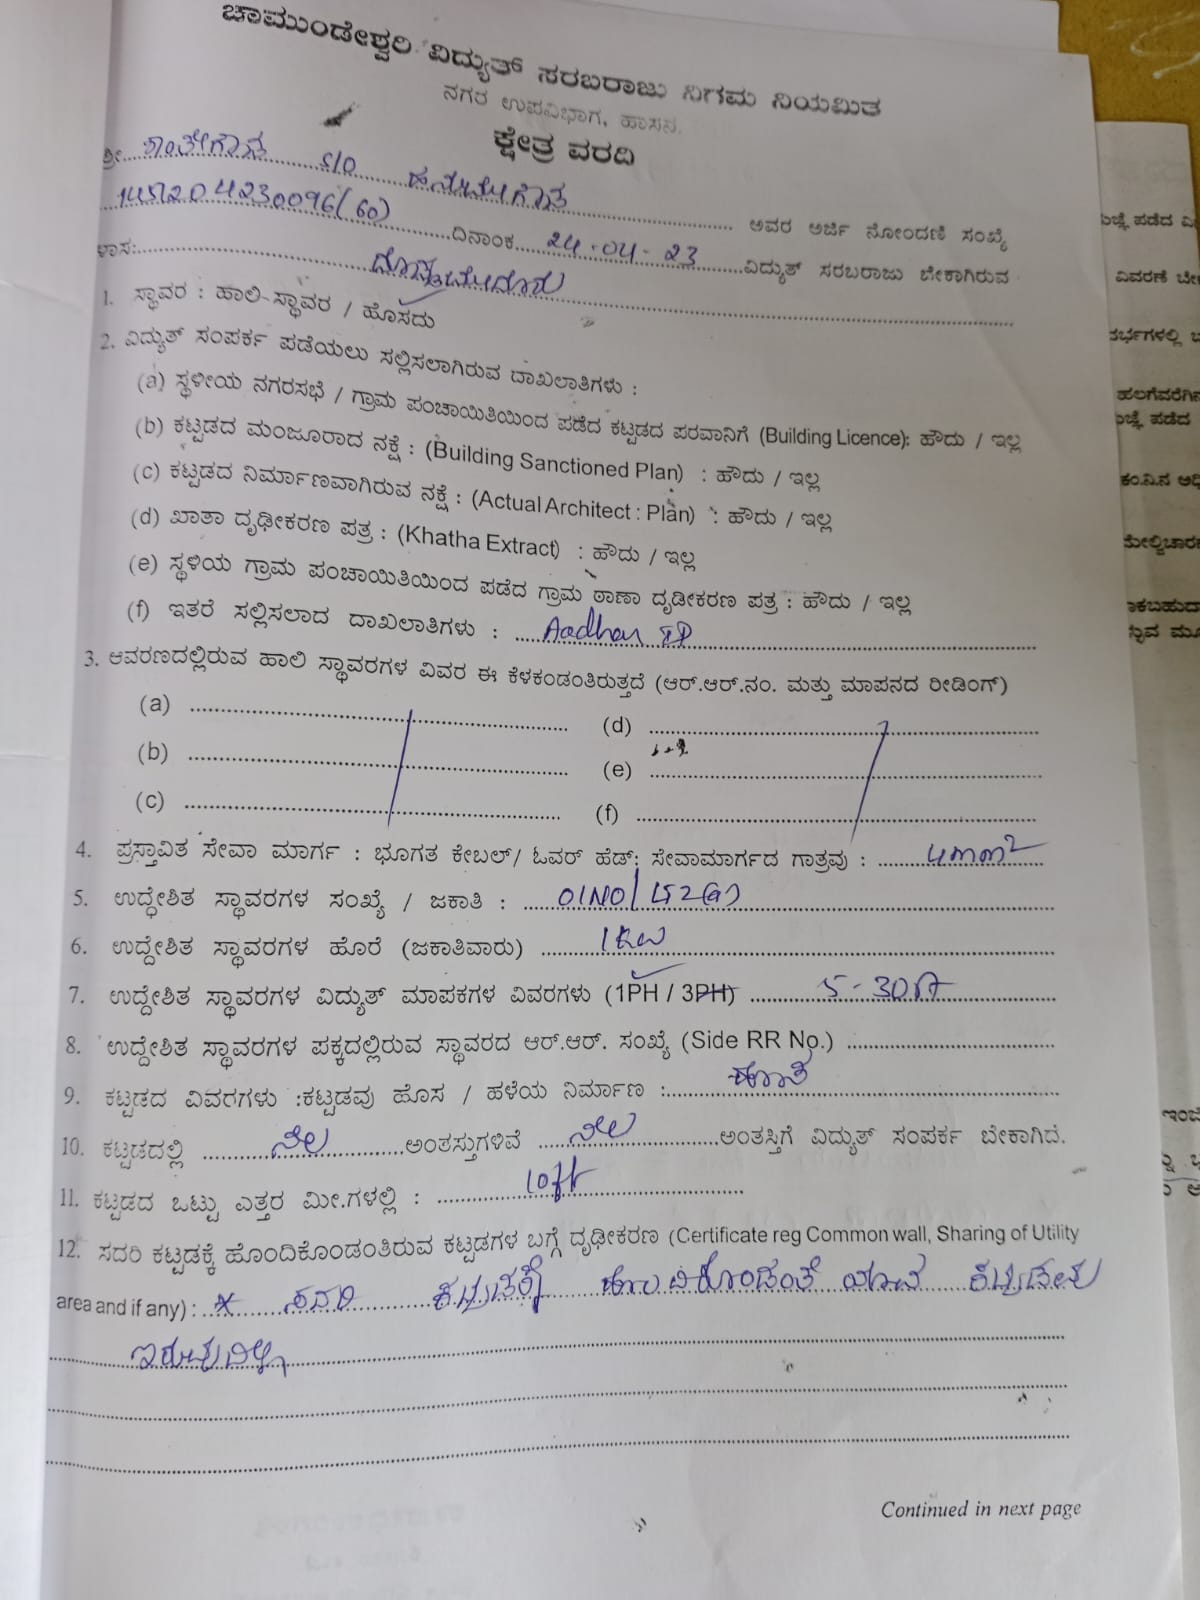 ಚಾಮುಂಡೇಶ್ವರಿ ವಿದ್ಯುತ್ ಸರಬರಾಜು ನಿಗಮ ನಿಯಮಿತ
ನಗರ ಉಪವಿಭಾಗ, ಹಾಸನ.
ಕ್ಷೇತ್ರ ವರದಿ
ಶ್ರೀ. ಶಾಂತೇಗೌಡ S/O ಹನುಮೇಗೌಡ ಅವರ ಅರ್ಜಿ ನೋಂದಣಿ ಸಂಖ್ಯೆ
1451204230096(60) ದಿನಾಂಕ 24-04-23 ವಿದ್ಯುತ್ ಸರಬರಾಜು ಬೇಕಾಗಿರುವ
ಳಾಸ:
1. ಸ್ಥಾವರ : ಹಾಲಿ-ಸ್ಥಾವರ / ಹೊಸದು
2. ವಿದ್ಯುತ್ ಸಂಪರ್ಕ ಪಡೆಯಲು ಸಲ್ಲಿಸಲಾಗಿರುವ ದಾಖಲಾತಿಗಳು :
(a) ಸ್ಥಳೀಯ ನಗರಸಭೆ / ಗ್ರಾಮ ಪಂಚಾಯಿತಿಯಿಂದ ಪಡೆದ ಕಟ್ಟಡದ ಪರವಾನಿಗೆ (Building Licence): ಹೌದು / ಇಲ್ಲ
(b) ಕಟ್ಟಡದ ಮಂಜೂರಾದ ನಕ್ಷೆ : (Building Sanctioned Plan) : ಹೌದು / ಇಲ್ಲ
(c) ಕಟ್ಟಡದ ನಿರ್ಮಾಣವಾಗಿರುವ ನಕ್ಷೆ : (Actual Architect : Plan) : ಹೌದು / ಇಲ್ಲ
(d) ಖಾತಾ ದೃಢೀಕರಣ ಪತ್ರ : (Khatha Extract) : ಹೌದು / ಇಲ್ಲ
(e) ಸ್ಥಳಿಯ ಗ್ರಾಮ ಪಂಚಾಯಿತಿಯಿಂದ ಪಡೆದ ಗ್ರಾಮ ಠಾಣಾ ದೃಡೀಕರಣ ಪತ್ರ : ಹೌದು / ಇಲ್ಲ
(f) ಇತರೆ ಸಲ್ಲಿಸಲಾದ ದಾಖಲಾತಿಗಳು : Aadhar ID
3. ಆವರಣದಲ್ಲಿರುವ ಹಾಲಿ ಸ್ಥಾವರಗಳ ವಿವರ ಈ ಕೆಳಕಂಡಂತಿರುತ್ತದೆ (ಆರ್.ಆರ್.ನಂ. ಮತ್ತು ಮಾಪನದ ರೀಡಿಂಗ್)
(a) (d)
(b) (e)
(c) (f)
4. ಪ್ರಸ್ತಾವಿತ ಸೇವಾ ಮಾರ್ಗ : ಭೂಗತ ಕೇಬಲ್/ ಓವರ್ ಹೆಡ್: ಸೇವಾಮಾರ್ಗದ ಗಾತ್ರವು : 4mm²
5. ಉದ್ಧೇಶಿತ ಸ್ಥಾವರಗಳ ಸಂಖ್ಯೆ / ಜಕಾತಿ : 01NO/ LT2(a)
6. ಉದ್ದೇಶಿತ ಸ್ಥಾವರಗಳ ಹೊರೆ (ಜಕಾತಿವಾರು) 1KW
7. ಉದ್ದೇಶಿತ ಸ್ಥಾವರಗಳ ವಿದ್ಯುತ್ ಮಾಪಕಗಳ ವಿವರಗಳು (1PH / 3PH) 5-30A
8. ಉದ್ದೇಶಿತ ಸ್ಥಾವರಗಳ ಪಕ್ಕದಲ್ಲಿರುವ ಸ್ಥಾವರದ ಆರ್.ಆರ್. ಸಂಖ್ಯೆ (Side RR No.)
9. ಕಟ್ಟಡದ ವಿವರಗಳು :ಕಟ್ಟಡವು ಹೊಸ / ಹಳೆಯ ನಿರ್ಮಾಣ :
10. ಕಟ್ಟಡದಲ್ಲಿ ನೆಲ ಅಂತಸ್ತುಗಳಿವೆ ನೆಲ ಅಂತಸ್ತಿಗೆ ವಿದ್ಯುತ್ ಸಂಪರ್ಕ ಬೇಕಾಗಿದೆ.
11. ಕಟ್ಟಡದ ಒಟ್ಟು ಎತ್ತರ ಮೀ.ಗಳಲ್ಲಿ : 10ft
12. ಸದರಿ ಕಟ್ಟಡಕ್ಕೆ ಹೊಂದಿಕೊಂಡಂತಿರುವ ಕಟ್ಟಡಗಳ ಬಗ್ಗೆ ದೃಢೀಕರಣ (Certificate reg Common wall, Sharing of Utility
area and if any) : * ಸದರಿ ಕಟ್ಟಡಕ್ಕೆ ಹೊಂದಿಕೊಂಡಂತೆ ಯಾವ ಕಟ್ಟಡವು
ಇರುವುದಿಲ್ಲ
Continued in next page